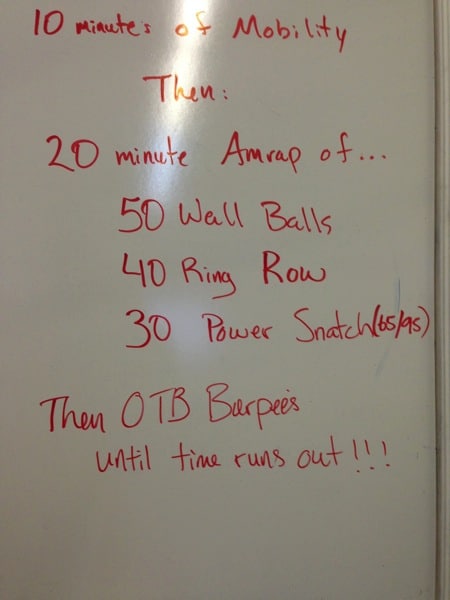 10 minutes of Mobility
Then:
20 minute Amrap of...
50 Wall Balls
40 Ring Row
30 Power Snatch (65/95)
Then OTB Burpees
until time runs out!!!